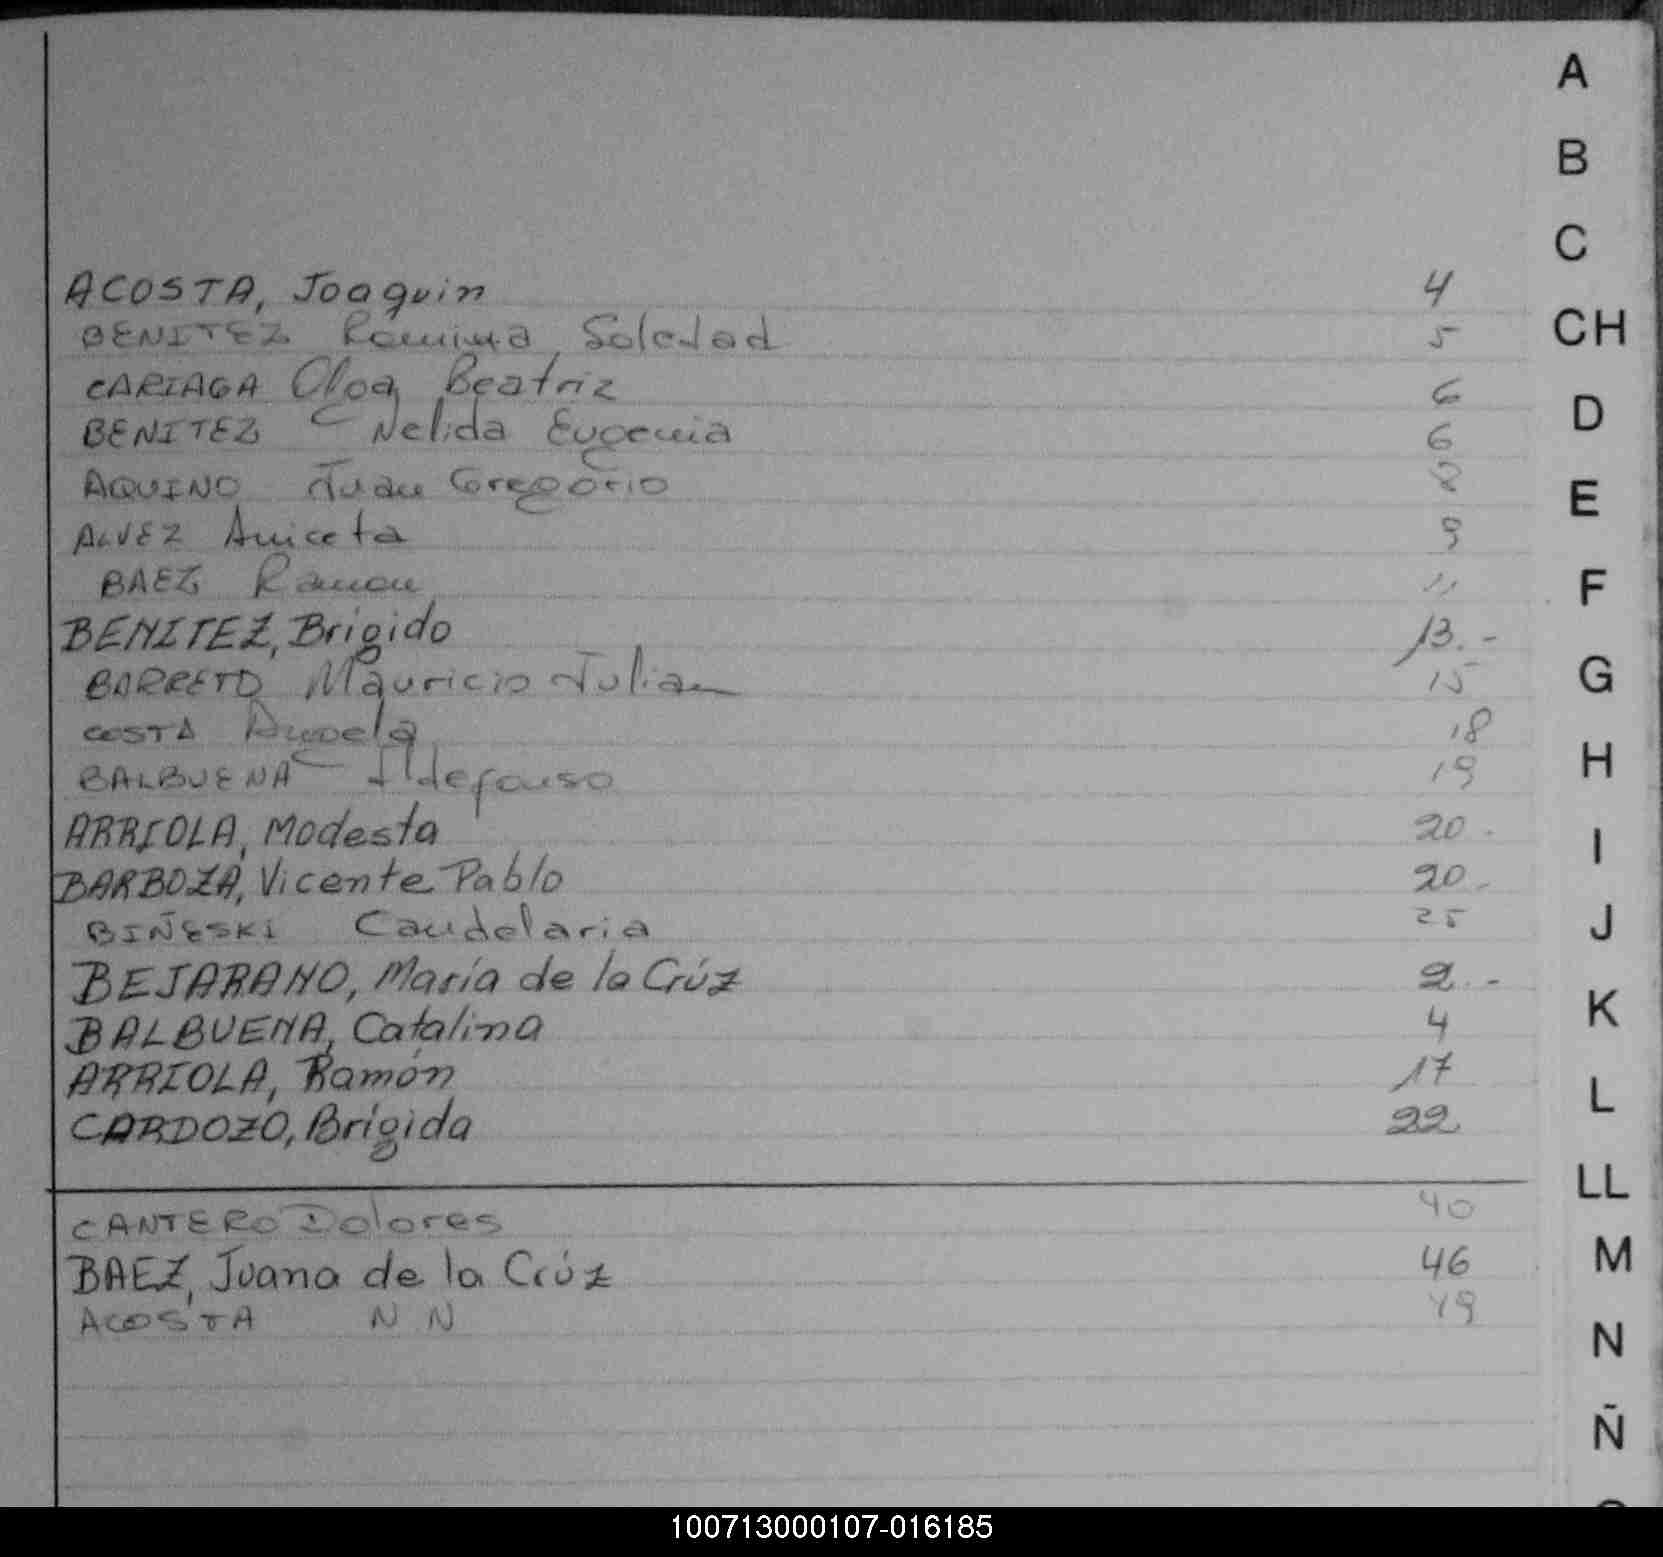 ACOSTA, Joaquin 4
BENITEZ Romina Soledad 5
CARIAGA Olga Beatriz 6
BENITEZ Nelida Eugenia 6
AQUINO Juan Gregorio 8
ALVEZ Aniceta 9
BAEZ Ramon 11
BENITEZ, Brigido 13.-
BARRETO Mauricio Julian 15
COSTA Angela 18
BALBUENA Ildefonso 19
ARRIOLA, Modesta 20.
BARBOZA, Vicente Pablo 20.
BIÑESKI Candelaria 25
BEJARANO, María de la Crúz 2.-
BALBUENA, Catalina 4
ARRIOLA, Ramón 17
CARDOZO, Brígida 22.
CANTERO Dolores 40
BAEZ, Juana de la Crúz 46
ACOSTA N N 49
A
B
C
CH
D
E
F
G
H
I
J
K
L
LL
M
N
Ñ
100713000107-016185